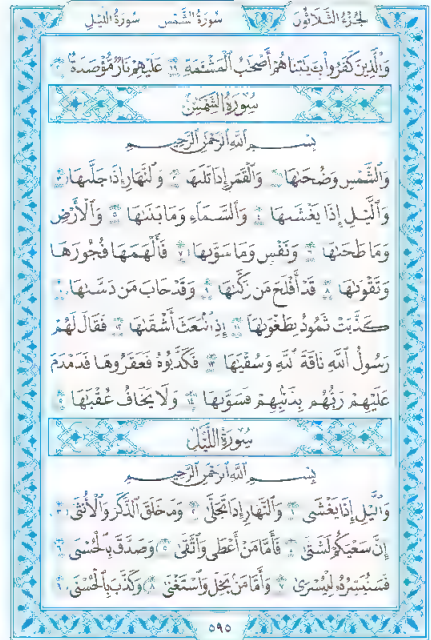 الجزء الثلاثون سورة الشمس سورة الليل
والذين كفروا بـٔايتنا هم أصحب المشـٔمة ١٩ عليهم نار مؤصدة ٢٠
سورة الشمس
بسم الله الرحمن الرحيم
والشمس وضحىها ١ والقمر إذا تلىها ٢ والنهار إذا جلىها ٣
واليل إذا يغشىها ٤ والسماء وما بنىها ٥ والأرض
وما طحىها ٦ ونفس وما سوىها ٧ فألهمها فجورها
وتقوىها ٨ قد أفلح من زكىها ٩ وقد خاب من دسىها ١٠
كذبت ثمود بطغوىها ١١ إذ انبعث أشقىها ١٢ فقال لهم
رسول الله ناقة الله وسقيها ١٣ فكذبوه فعقروها فدمدم
عليهم ربهم بذنبهم فسوىها ١٤ ولا يخاف عقبها ١٥
سورة الليل
بسم الله الرحمن الرحيم
واليل إذا يغشى ١ والنهار إذا تجلى ٢ وما خلق الذكر والأنثى ٣
إن سعيكم لشتى ٤ فأما من أعطى واتقى ٥ وصدق بالحسنى ٦
فسنيسره لليسرى ٧ وأما من بخل واستغنى ٨ وكذب بالحسنى ٩
٥٩٥